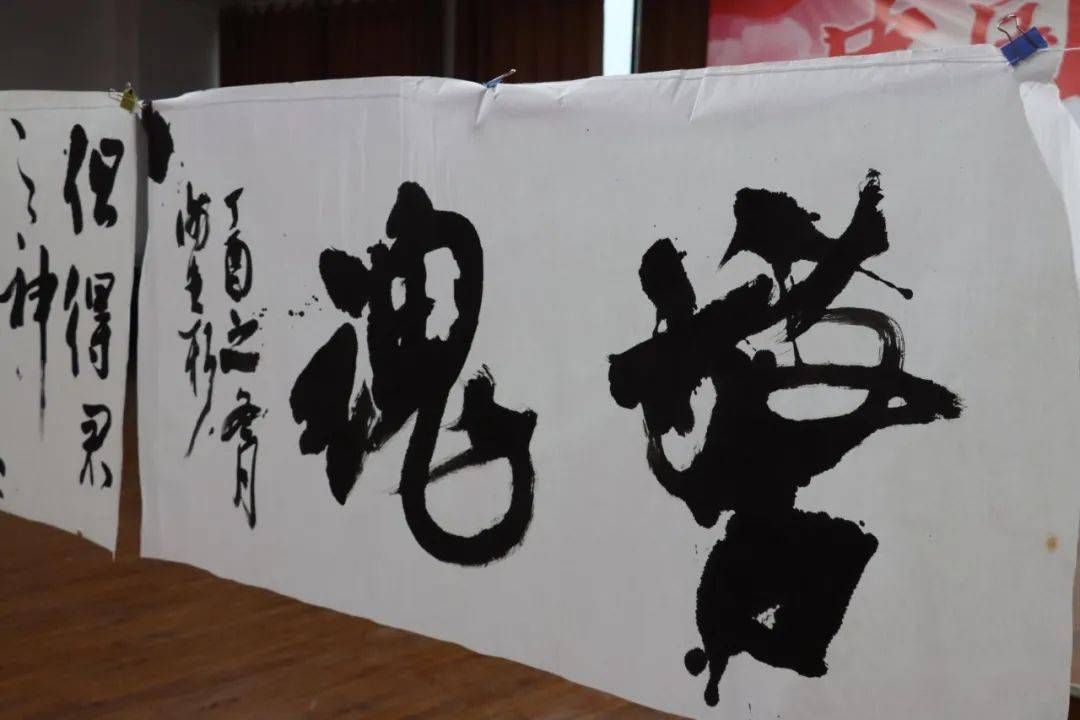 警魂
丁酉之冬月
海生
但得君
之神